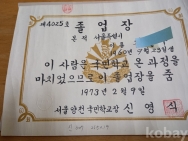 제4025호
졸업장
본적 서울특별시
60년 9월 25일생
이 사람은 국민학교 온 과정을
마치었으므로 이 졸업장을 줌
1973년 2월 9일
국민학교장 신영식
kobay